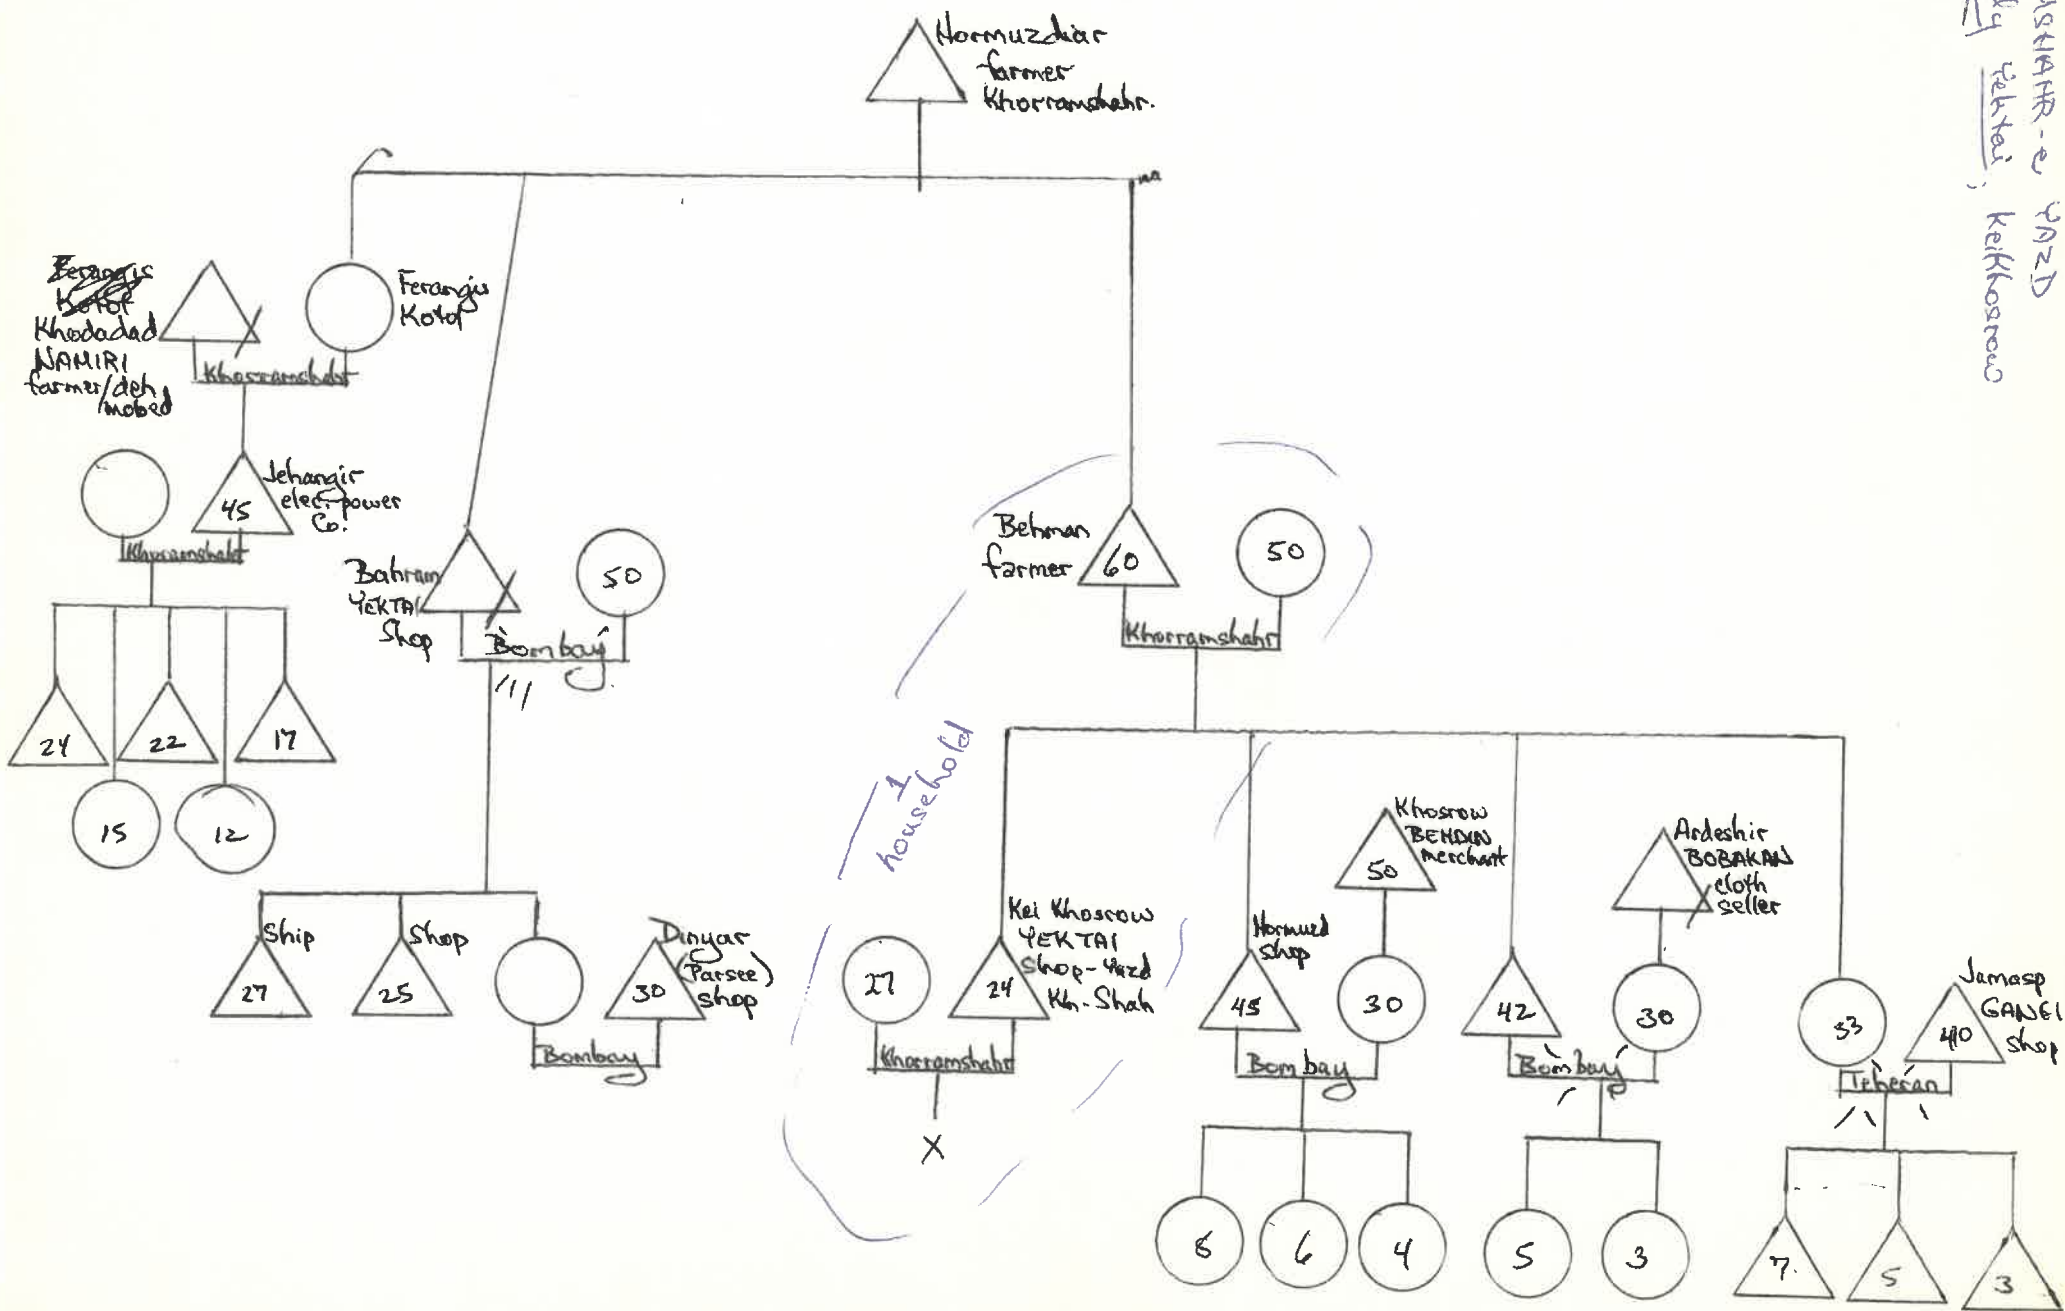 Hormuzdiar
farmer
Khorramshahr.
YAZD
Yektai, KeiKhosrow
Ferangis
Kotof
Khodadad
NAMIRI
farmer/deh
mobed
Ferangis
Kotof
Khorramshahr
Jehangir
elec. power
Co.
45
Khorramshahr
24
22
17
15
12
Bahram
YEKTAI
Shop
50
Bombay
Behman
farmer
60
50
Khorramshahr
1
household
Ship
27
Shop
25
Dinyar
(Parsee)
shop
30
Bombay
27
Kei Khosrow
YEKTAI
Shop-Yazd
Kh-Shah
24
Khorramshahr
X
Hormuzd
shop
45
Khosrow
BEHDIN
merchant
50
30
Bombay
8
6
4
42
Ardeshir
BOBAKAN
cloth
seller
30
Bombay
5
3
33
Jamasp
GANEI
shop
40
Teheran
7.
5
3